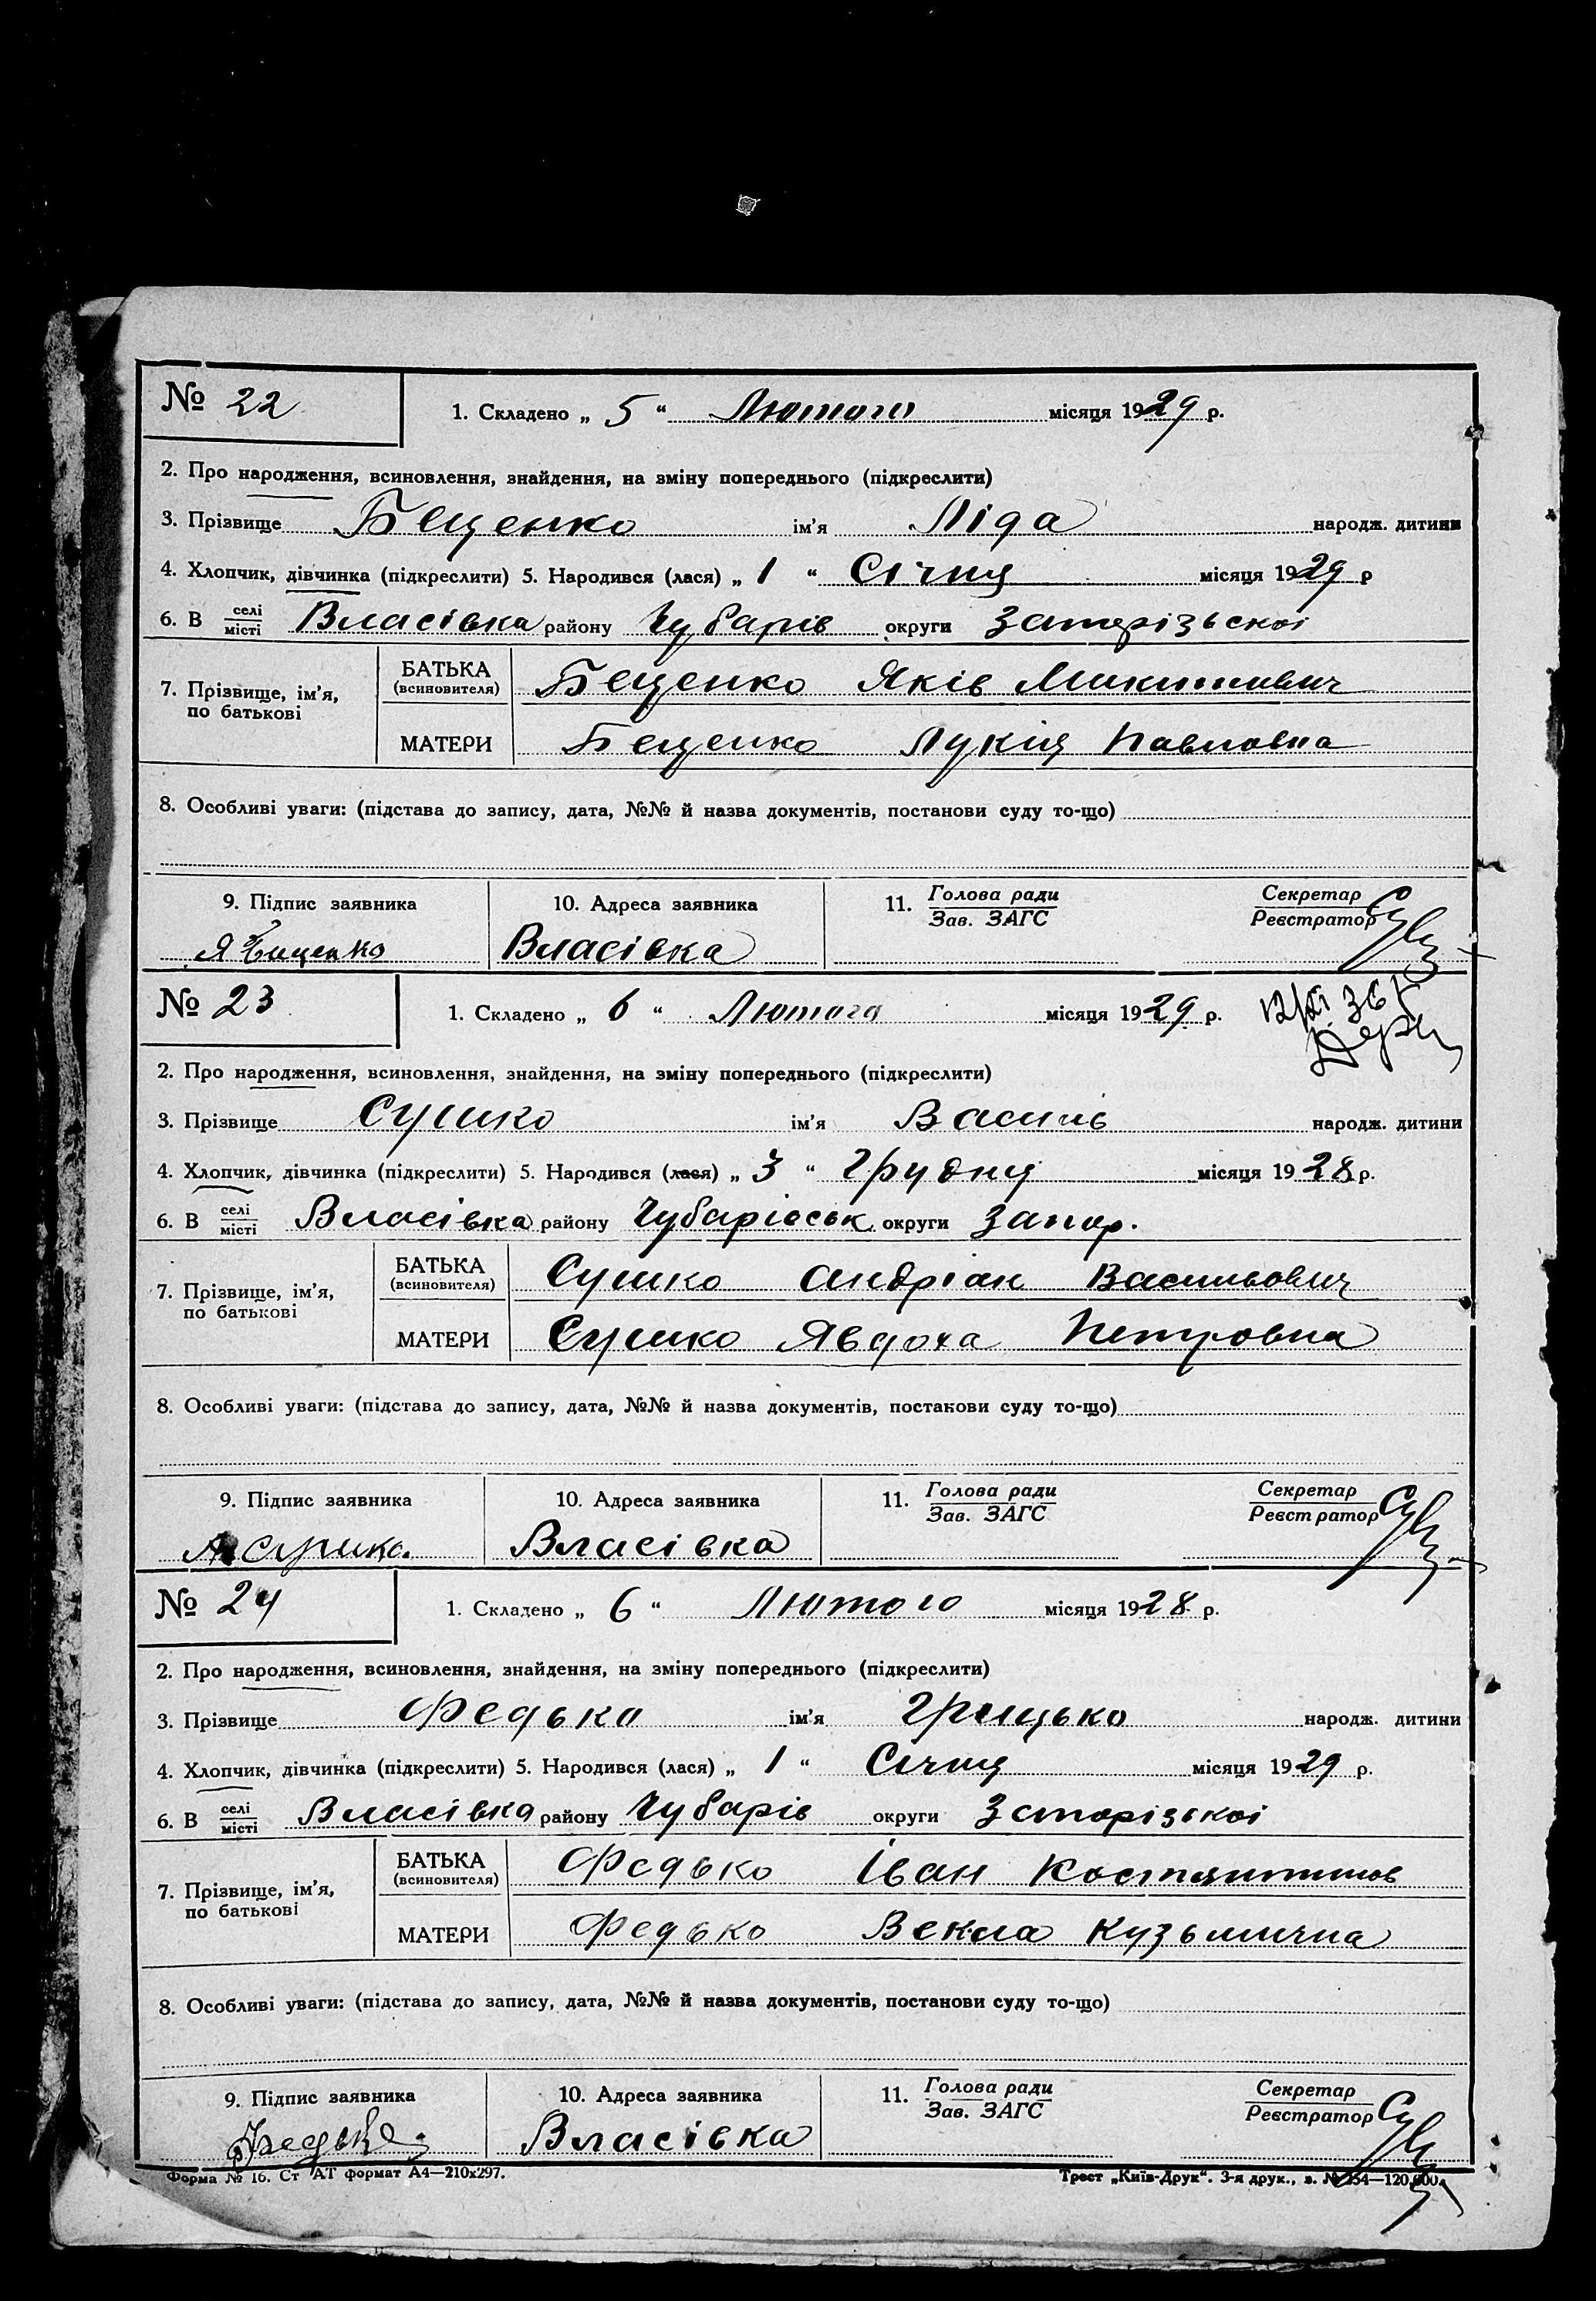 № 22
1. Складено „ 5 “ Лютого місяця 1929 р.
2. Про народження, всиновлення, знайдення, на зміну попереднього (підкреслити)
3. Прізвище Бещенко ім'я Ліда народж. дитини
4. Хлопчик, дівчинка (підкреслити) 5. Народився (лася) „ 1 “ Січня місяця 1929 р
6. В селі/місті Власівка району Чубарів округи Запорізьскої
7. Прізвище, ім'я, по батькові
БАТЬКА (всиновителя) Бещенко Яків Микитович
МАТЕРИ Бещенко Лукія Павловна
8. Особливі уваги: (підстава до запису, дата, №№ й назва документів, постанови суду то-що)
9. Підпис заявника 10. Адреса заявника 11. Голова ради/Зав. ЗАГС Секретар/Реєстратор
Я Бищенко Власівка
№ 23
1. Складено „ 6 “ Лютого місяця 1929 р.
2. Про народження, всиновлення, знайдення, на зміну попереднього (підкреслити)
3. Прізвище Сушко ім'я Василь народж. дитини
4. Хлопчик, дівчинка (підкреслити) 5. Народився (лася) „ 3 “ Грудня місяця 1928 р.
6. В селі/місті Власівка району Чубарівськ округи Запор.
7. Прізвище, ім'я, по батькові
БАТЬКА (всиновителя) Сушко Андріан Васильович
МАТЕРИ Сушко Явдоха Петровна
8. Особливі уваги: (підстава до запису, дата, №№ й назва документів, постанови суду то-що)
9. Підпис заявника 10. Адреса заявника 11. Голова ради/Зав. ЗАГС Секретар/Реєстратор
А Сушко. Власівка
№ 24
1. Складено „ 6 “ Лютого місяця 1928 р.
2. Про народження, всиновлення, знайдення, на зміну попереднього (підкреслити)
3. Прізвище Федько ім'я Грицько народж. дитини
4. Хлопчик, дівчинка (підкреслити) 5. Народився (лася) „ 1 “ Січня місяця 1929 р.
6. В селі/місті Власівка району Чубарів округи Запорізької
7. Прізвище, ім'я, по батькові
БАТЬКА (всиновителя) Федько Іван Костянтинов
МАТЕРИ Федько Векла Кузьмична
8. Особливі уваги: (підстава до запису, дата, №№ й назва документів, постанови суду то-що)
9. Підпис заявника 10. Адреса заявника 11. Голова ради/Зав. ЗАГС Секретар/Реєстратор
Федько Власівка
Форма № 16. Ст АТ формат А4—210х297. Трест „Київ-Друк“. 3-я друк., з. №